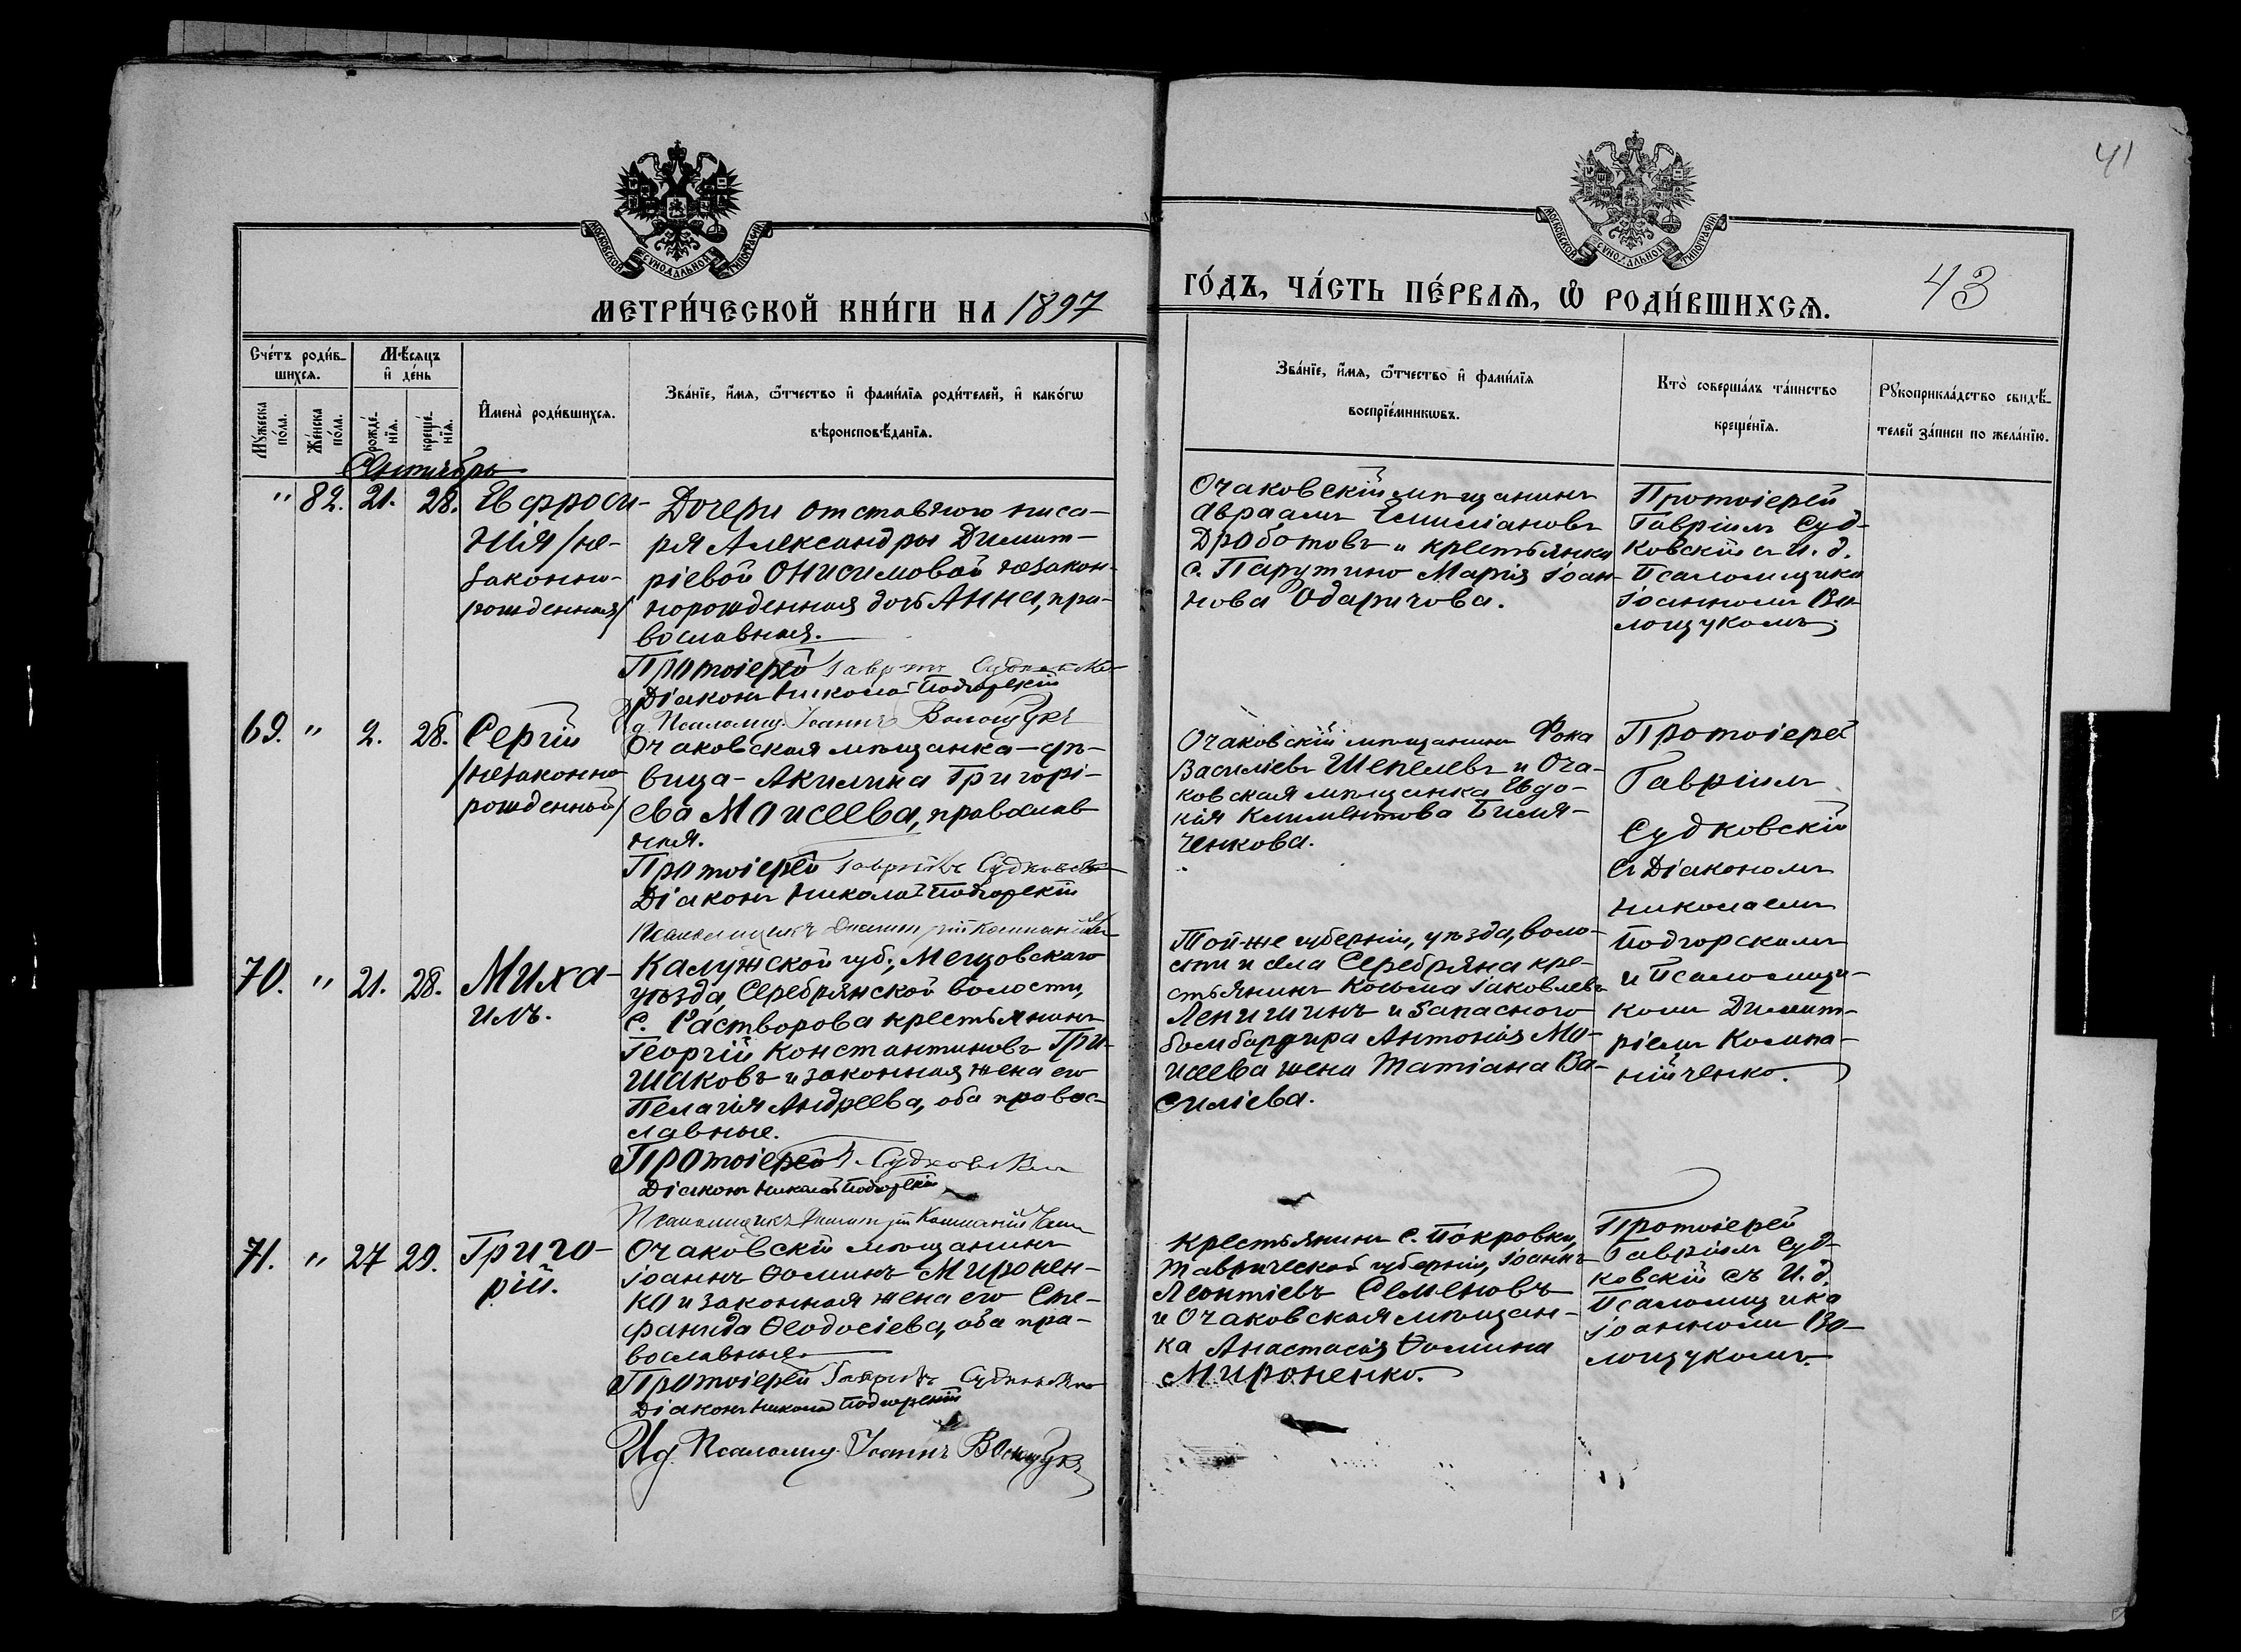 41
МОСКОВСКОЙ СѴНОДАЛЬНОЙ ТИПОГРАФІИ
МОСКОВСКОЙ СѴНОДАЛЬНОЙ ТИПОГРАФІИ
МЕТРИ́ЧЕСКОЙ КНИ́ГИ НА 1897
ГО́ДЪ, ЧА́СТЬ ПЕ́РВАѦ, Ѡ҆ РОДИ́ВШИХСѦ. 43
Сче́тъ роди́в-
шихсѧ.
Мѣ́сѧцъ
и҆ де́нь
Мꙋ́жеска
по́ла.
Же́нска
по́ла.
рожде́-
нїѧ.
креще́-
нїѧ.
И҆мена̀ роди́вшихсѧ.
Зва́нїе, и҆́мѧ, ѻ҆́тчество и҆ фами́лїѧ роди́телей, и҆ како́гѡ
вѣроисповѣ́данїѧ.
Зва́нїе, и҆́мѧ, ѻ҆́тчество и҆ фами́лїѧ
воспрїе́мникѡвъ.
Кто̀ соверша́лъ та́инство
креще́нїѧ.
Рꙋкоприкла́дство свидѣ́-
телей за́писи по жела́нїю.
Сентябрь
" 82. 21. 28. Евфроси-
нія /не-
законно-
рожденная/
Дочери отставного писа-
ря Александры Димит-
ріевой Онисимовой незакон-
норожденная дочь Анна, пра-
вославная.
Протоіерей Гавріилъ Судковскій
Діаконъ Николай Подгорскій
И д. Псаломщ. Іоаннъ Волощукъ
Очаковскій мѣщанинъ
Авраамъ Емиліановъ
Дроботовъ и крестьянка
с. Парутино Марія Іоан-
нова Одаричова.
Протоіерей
Гавріилъ Суд-
ковскій съ и. д.
Псаломщика
Іоанномъ Во-
лощукомъ.
69. " 2. 28. Сергій
/незаконно
рожденный/
Очаковская мѣщанка - дѣ-
вица - Акилина Григорі-
ева Моисеева, православ
ная.
Протоіерей Гавріилъ Судковскій
Діаконъ Николай Подгорскій
Псаломщикъ Димитрій Компанійченко
Очаковскій мѣщанинъ Фока
Василіевъ Шепелевъ и Оча-
ковская мѣщанка Евдо-
кія Климентова Билія-
ченкова.
Протоіерей
Гавріилъ
Судковскій
съ Діакономъ
Николаемъ
Подгорскимъ
и Псаломщи-
комъ Димит-
ріемъ Компа-
нійченко.
70. " 21. 28. Миха-
илъ.
Калужской губ., Мещовскаго
уѣзда, Серебрянской волости,
с. Растворова крестьянинъ
Георгій Константиновъ Гри-
шаковъ и законная жена его
Пелагія Андреева, оба правос-
лавные.
Протоіерей Г. Судковскій
Діаконъ Николай Подгорскій
Псаломщикъ Димитрій Компанійченко
Той-же губерніи, уѣзда, воло-
сти и села Серебряна кре-
стьянинъ Косьма Іаковлевъ
Ленишинъ и запасного
бомбардира Антонія Мо-
исеева жена Татіана Ва-
силіева.
71. " 27 29. Григо-
рій.
Очаковскій мѣщанинъ
Іоаннъ Ѳоминъ Миронен-
ко и законная жена его Сте-
фанида Ѳеодосіева, оба пра-
вославные.
Протоіерей Гавріилъ Судковскій
Діаконъ Николай Подгорскій
И д. Псаломщ. Іоаннъ Волощукъ
Крестьянинъ с. Покровки,
Таврической губерніи, Іоаннъ
Леонтіевъ Семеновъ
и Очаковская мѣщан-
ка Анастасія Ѳомина
Мироненко.
Протоіерей
Гавріилъ Суд-
ковскій съ И. д.
Псаломщика
Іоанномъ Во-
лощукомъ.